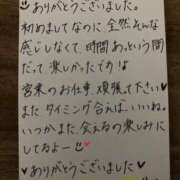 ありがとうございました。
初めましてなのに全然そんな
感じしなくて、時間あっという間
だって楽しかったです!
お仕事頑張って下さい♥
またタイミング合えば、いいね。
いつかまた会えるの楽しみに
してるよー
♥ありがとうございました♥